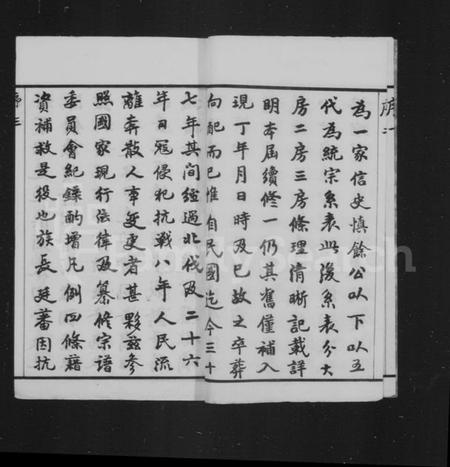 為一家信史慎餘公以下以五
代為統宗系表此後系表分大
房二房三房條理清晰記載詳
明本屆續修一仍其舊僅補入
現丁年月日時及已故之卒葬
向配而已惟自民國迄今三十
七年其間經過北伐及二十六
年日寇侵犯抗戰八年人民流
離奔散人事變更者甚夥茲參
照國家現行法律及纂修宗譜
委員會紀錄酌增凡例四條藉
資補救是役也族長廷蕃因抗